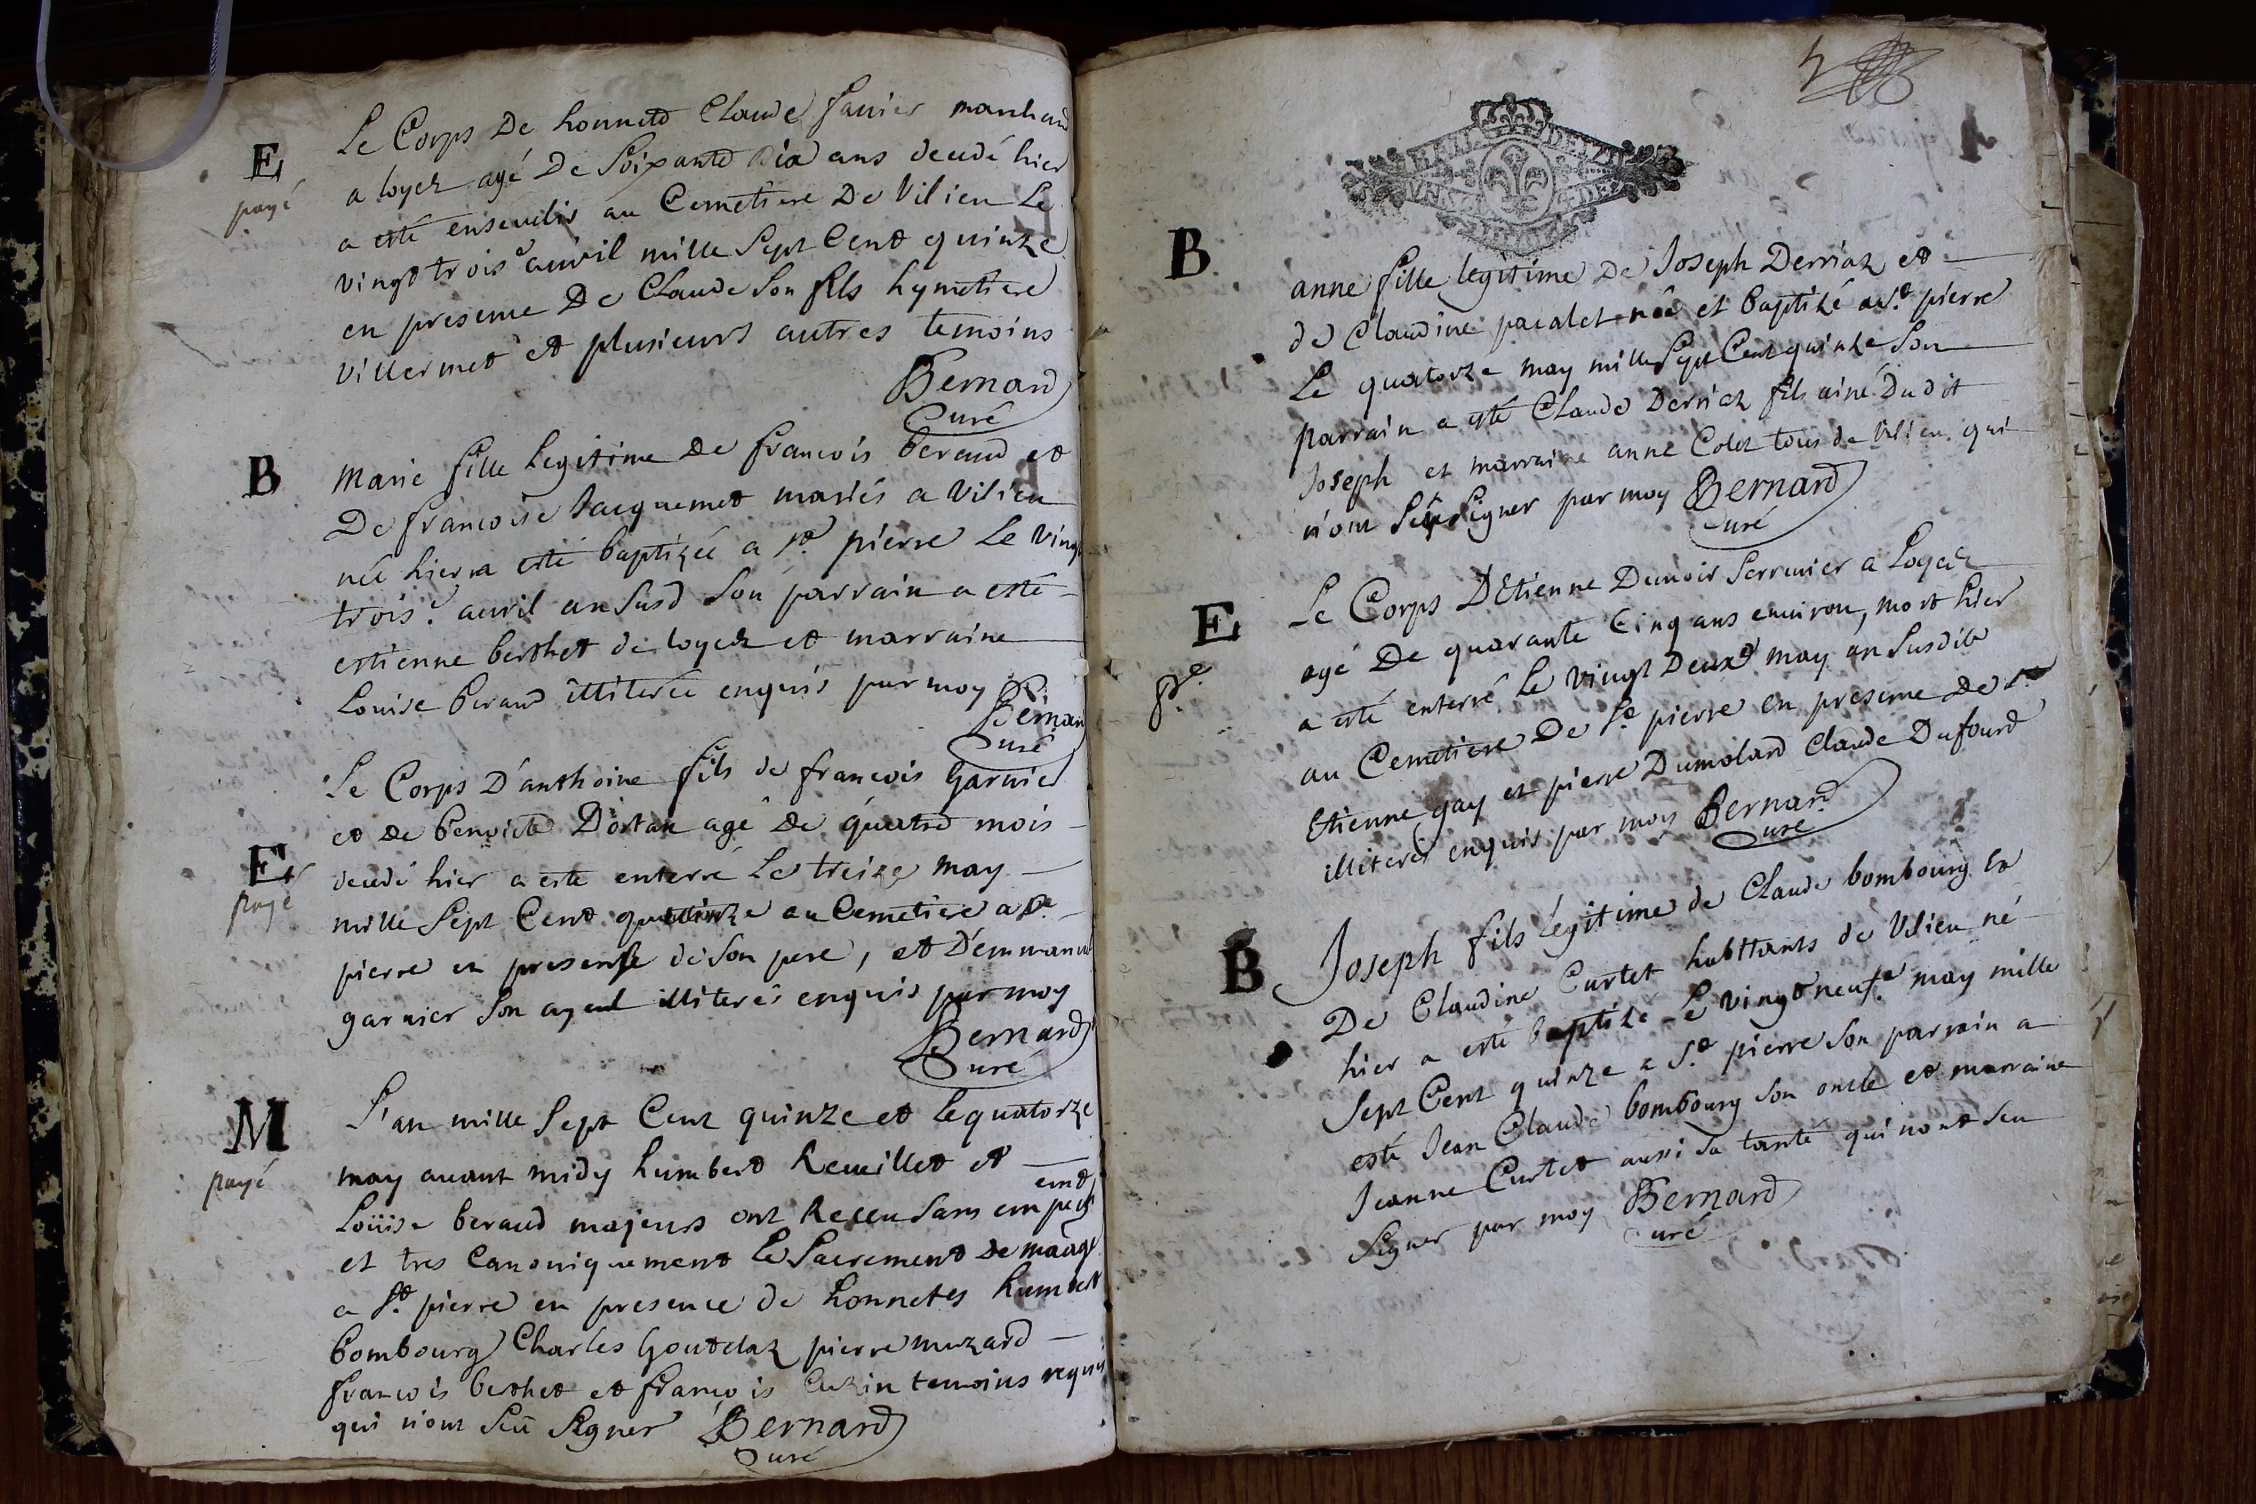 E
payé
Le Corps De honneto Claude marchand
a loyez agé De Soixante Dix ans decedé hier
a esté enseueli au Cemetiere De Vilieu Le
vingt trois.e auril mille Sept Cent quinze
en presence De Claude Son fils hymetiere
Villermet et plusieurs autres temoins
Bernard
Curé
B
Marie fille legitime De francois beraud et
De francoise Jacquemet mariés a Vilieu
née hier a esté baptizée a St. pierre Le vingt
trois.e auril an Susd Son parrain a esté
estienne berthet de loyez et marraine
Louise beraud illiterée enquis par moy
Bernard
Curé
E
payé
Le Corps D'anthoine fils de francois Garnier
et de benoicte Dortan agé De quatre mois
decedé hier a esté enterré Le treize may
mille Sept Cent quinze au Cemetiere a St.
pierre en presense de Son pere, et D'emmanuel
garnier Son ayeul illiterés enquis par moy
Bernard
Curé
M
payé
L'an mille Sept Cent quinze et le quatorze
may auant midy humbert Reueillet et
Loüise beraud majeurs ont Receu Sans empechemt
et tres Canoniquement Le Sacrement De maage
a St. pierre en presence de honnetes humbert
bombourg Charles Goutelaz pierre muzard
francois berthet et francois Cuzin temoins requis
qui n'ont Sceu Signer Bernard
Curé
B
anne fille legitime De Joseph Derriaz et
de Claudine pacalet née et baptizé a St. pierre
Le quatorze may mille Sept Cent quinze Son
parrain a esté Claude Derriaz fils ainé Dudit
Joseph et marraine anne Colet tous de Vilieu qui
n'ont Sceu Signer par moy Bernard
Curé
E
Le Corps D'Etienne Dunoir Serrurier a Loyez
agé De quarante Cinq ans enuiron, mort hier
a esté enterré Le vingt Deuxe may an Susdit
au Cemetiere De St. pierre en presence de
Etienne gay et pierre Dumolard Claude Dufourd
illiterés enquis par moy Bernard
Curé
B
Joseph fils legitime de Claude bombourg Et
De Claudine Curtet habittants de Vilieu né
hier a esté baptizé Le vingt neufe may mille
Sept Cent quinze a St. pierre Son parrain a
esté Jean Claude bombourg Son oncle et marraine
Jeanne Curtet aussi Sa tante qui n'ont Sceu
Signer par moy Bernard
Curé